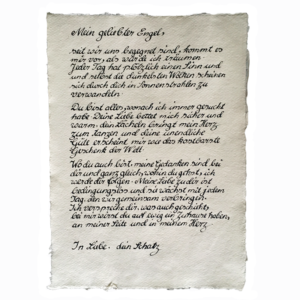 Mein geliebter Engel,
seit wir uns begegnet sind, kommt es
mir vor, als würde ich träumen
Jeder Tag hat plötzlich einen Sinn und
und selbst die dunkelsten Wolken scheinen
sich durch dich in Sonnenstrahlen zu
verwandeln.
Du bist alles, wonach ich immer gesucht
habe Deine Liebe bettet mich sicher und
warm. dein Lächeln bringt mein Herz
zum tanzen und deine unendliche
Güte erscheint mir wie das kostbarste
Geschenk der Welt
Wo du auch bist, meine Gedanken sind bei
dir und ganz gleich, wohin du gehst, ich
werde dir folgen. Meine Liebe zu dir ist
bedingungslos und sie wächst mit jedem
Tag, den wir gemeinsam verbringen.
Ich verspreche dir, was auch geschieht,
bei mir wirst du auf ewig ein zuhause haben,
an meiner Seite und in meinem Herz
In Liebe. dein Schatz